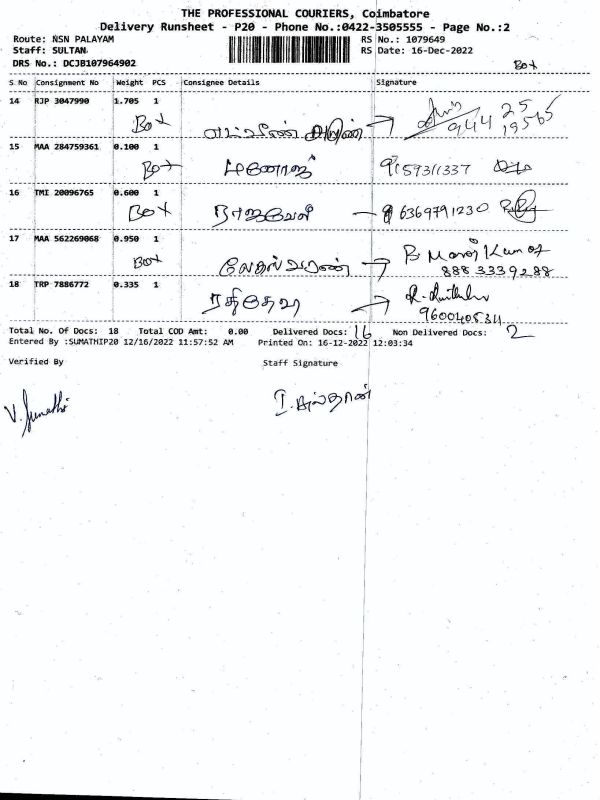 THE PROFESSIONAL COURIERS, Coimbatore
Delivery Runsheet - P20 - Phone No.:0422-3505555 - Page No.:2
Route: NSN PALAYAM RS No.: 1079649
Staff: SULTAN RS Date: 16-Dec-2022
DRS No.: DCJB107964902
Box
S No Consignment No Weight PCS Consignee Details Signature
14 RJP 3047990 1.705 1
Box 944 25 19565
15 MAA 284759361 0.100 1
Box மனோஜ் 9159311337
16 TMI 20096765 0.600 1
Box ராஜவேல் 6369791230
17 MAA 562269068 0.950 1
Box B Manoj Kumar
8883339288
18 TRP 7886772 0.335 1
ரதிதேவி
9600405311
Total No. Of Docs: 18 Total COD Amt: 0.00 Delivered Docs: 16 Non Delivered Docs: 2
Entered By :SUMATHIP20 12/16/2022 11:57:52 AM Printed On: 16-12-2022 12:03:34
Verified By Staff Signature
V. Sumathi I. சுல்தான்